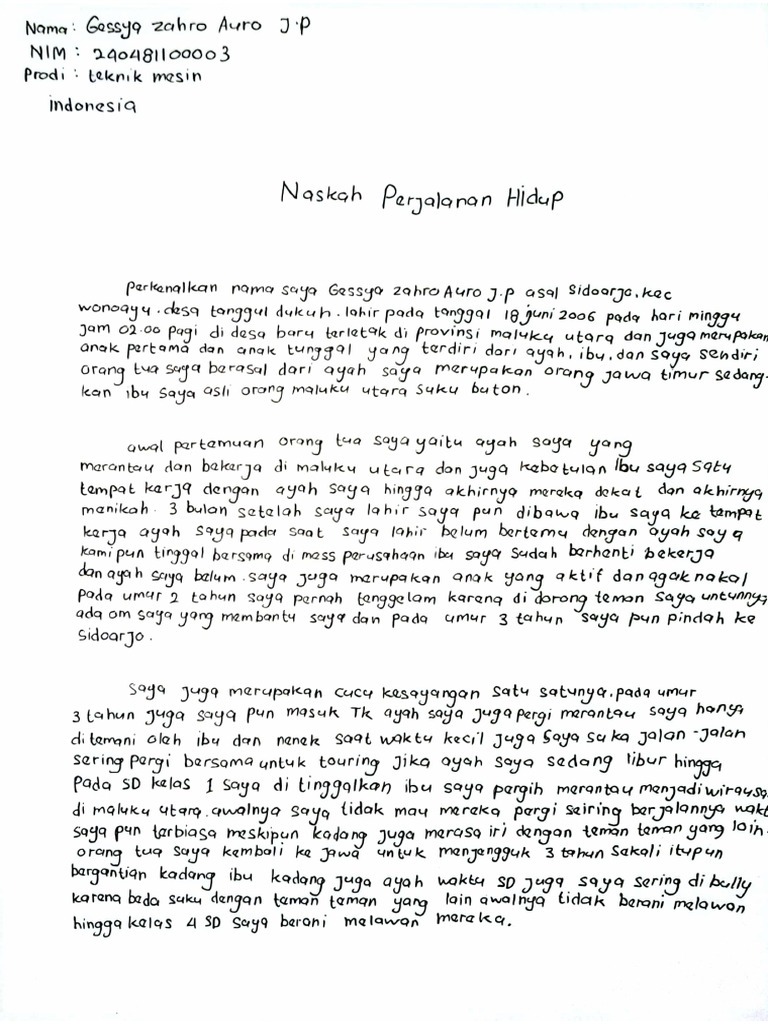 Nama : Gessya zahro Auro J.P
NIM : 240481100003
Prodi : teknik mesin
indonesia
Naskah Perjalanan Hidup
Perkenalkan nama saya Gessya zahro Auro J.P asal Sidoarjo, kec
wonoayu. desa tanggul dukuh. lahir pada tanggal 18 juni 2006 pada hari minggu
jam 02.00 pagi di desa baru terletak di provinsi maluku utara dan juga merupakan
anak pertama dan anak tunggal yang terdiri dari ayah, ibu, dan saya sendiri
orang tua saya berasal dari ayah saya merupakan orang jawa timur sedang-
kan ibu saya asli orang maluku utara suku buton.
awal pertemuan orang tua saya yaitu ayah saya yang
merantau dan bekerja di maluku utara dan juga kebetulan ibu saya satu
tempat kerja dengan ayah saya hingga akhirnya mereka dekat dan akhirnya
menikah. 3 bulan setelah saya lahir saya pun dibawa ibu saya ke tempat
kerja ayah saya pada saat saya lahir belum bertemu dengan ayah saya
kami pun tinggal bersama di mess perusahaan ibu saya sudah berhenti bekerja
dan ayah saya belum. saya juga merupakan anak yang aktif dan agak nakal
pada umur 2 tahun saya pernah tenggelam karena di dorong teman saya untunnya
ada om saya yang membantu saya dan pada umur 3 tahun saya pun pindah ke
Sidoarjo.
Saya juga merupakan cucu kesayangan satu satunya. pada umur
3 tahun juga saya pun masuk TK ayah saya juga pergi merantau saya hanya
di temani oleh ibu dan nenek saat waktu kecil juga saya suka jalan-jalan
sering pergi bersama untuk touring jika ayah saya sedang libur hingga
Pada SD kelas 1 saya di tinggalkan ibu saya pergih merantau menjadi wirausa
di maluku utara. awalnya saya tidak mau mereka pergi seiring berjalannya wakt
saya pun terbiasa meskipun kadang juga merasa iri dengan teman teman yang lain.
orang tua saya kembali ke jawa untuk menjengguk 3 tahun sekali itupun
bergantian kadang ibu kadang juga ayah waktu SD juga saya sering di bully
karena beda suku dengan teman teman yang lain awalnya tidak berani melawan
hingga kelas 4 SD saya berani melawan mereka.